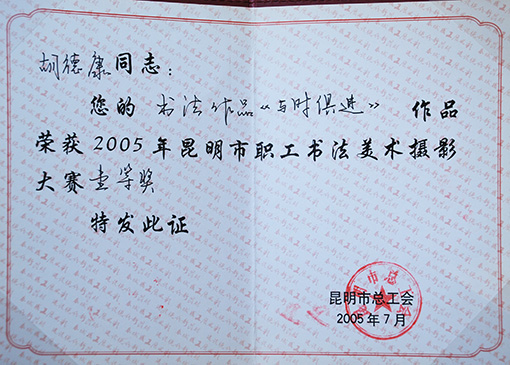 胡德康同志：
您的 书法作品《与时俱进》 作品
荣获2005年昆明市职工书法美术摄影
大赛壹等奖
特发此证
昆明市总工会
2005年7月
昆明市总工会